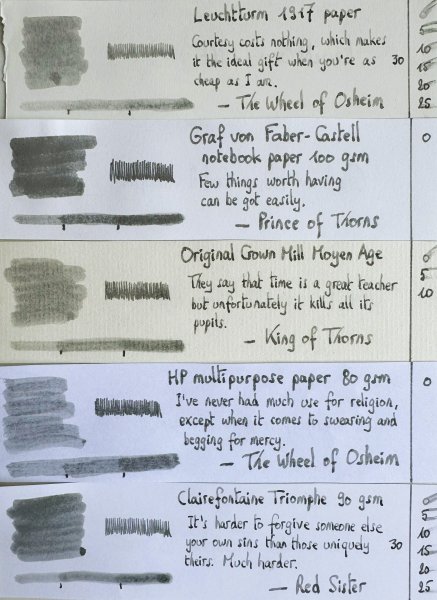 Leuchtturm 1917 paper
Courtesy costs nothing, which makes
it the ideal gift when you're as
cheap as I am.
— The Wheel of Osheim
5
10
30
15
20
25
Graf von Faber-Castell
notebook paper 100 gsm
Few things worth having
can be got easily.
— Prince of Thorns
0
Original Crown Mill Moyen Age
They say that time is a great teacher
but unfortunately it kills all its
pupils.
— King of Thorns
0
5
10
HP multipurpose paper 80 gsm
I've never had much use for religion,
except when it comes to swearing and
begging for mercy.
— The Wheel of Osheim
0
Clairefontaine Triomphe 90 gsm
It's harder to forgive someone else
your own sins than those uniquely
theirs. Much harder.
— Red Sister
5
10
30
15
20
25